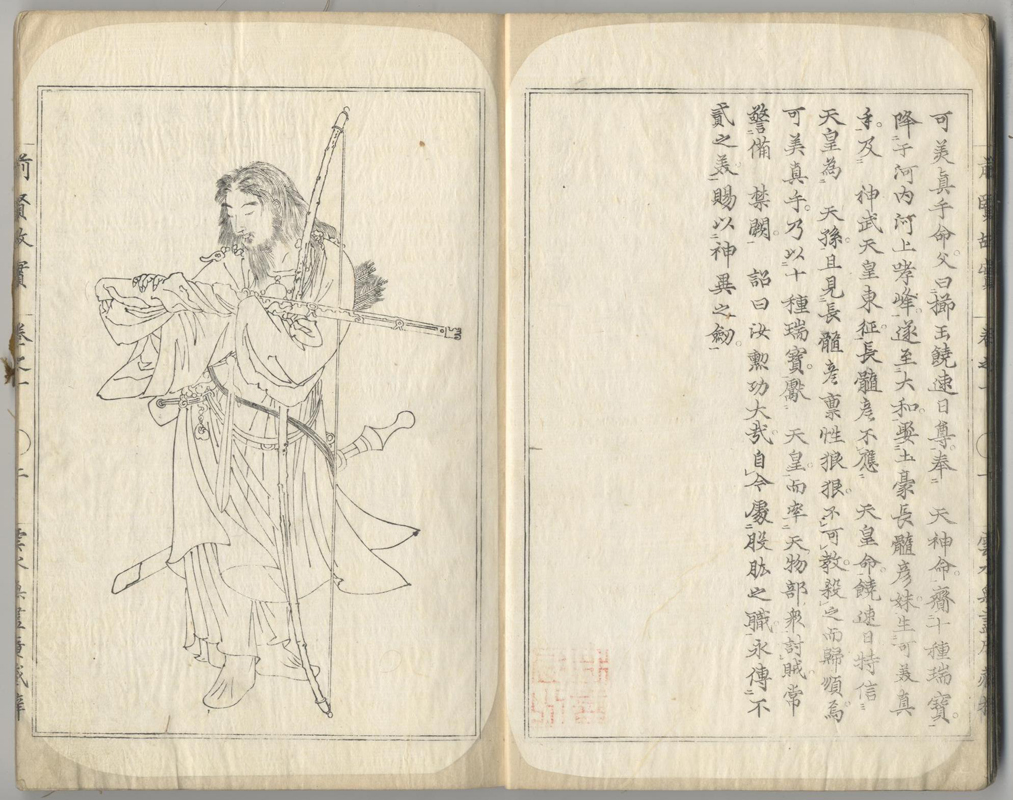 可美真手命父曰櫛玉饒速日尊奉 天神命齎十種瑞寶
降于河内河上哮峰遂至大和娶土豪長髓彦妹生可美真
手及 神武天皇東征長髓彦不應 天皇命饒速日特信
天皇為 天孫且見長髓彦稟性狠狠不可教殺之而歸順焉
可美真手乃以十種瑞寶獻 天皇而率天物部衆討賊常
警備 禁闕 詔曰汝勲功大哉自今處股肱之職永傳不
貳之美賜以神異之劔
前賢故實 卷之一